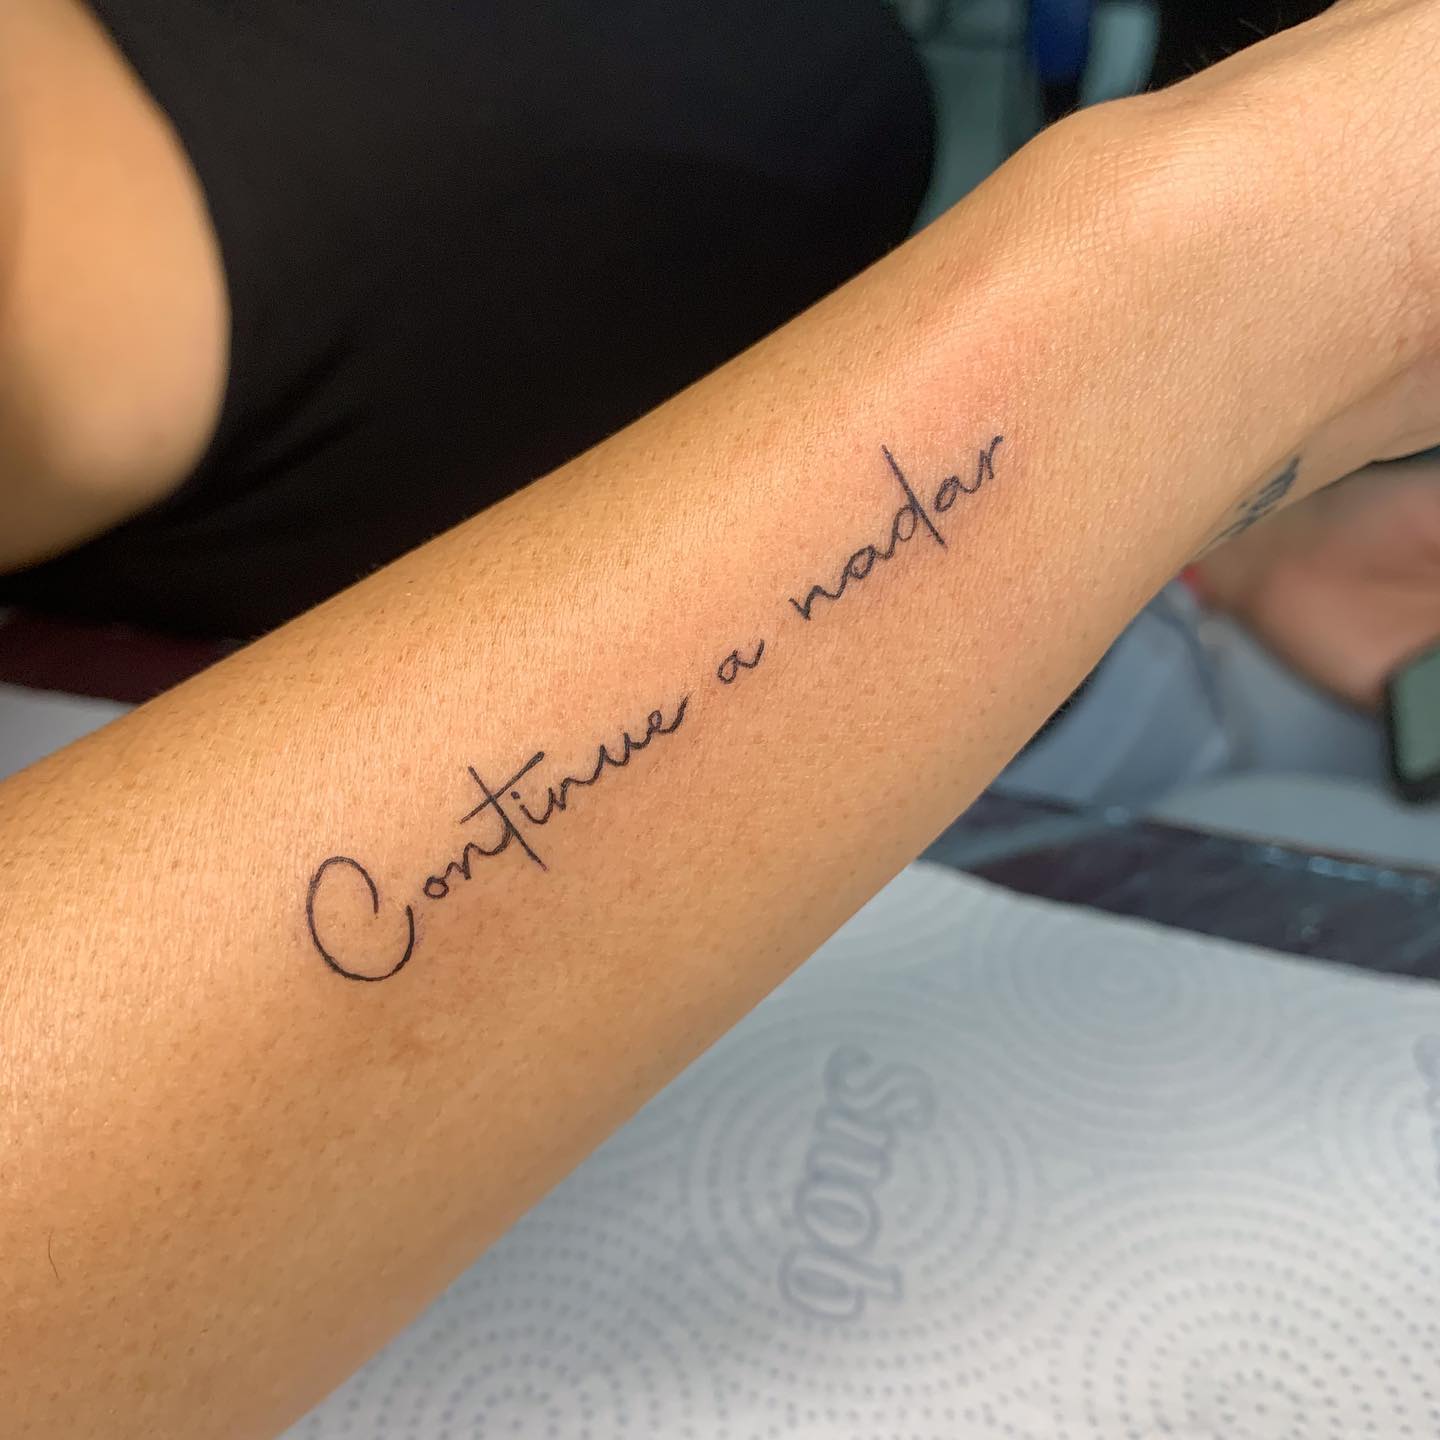 Continue a nadar
Snob